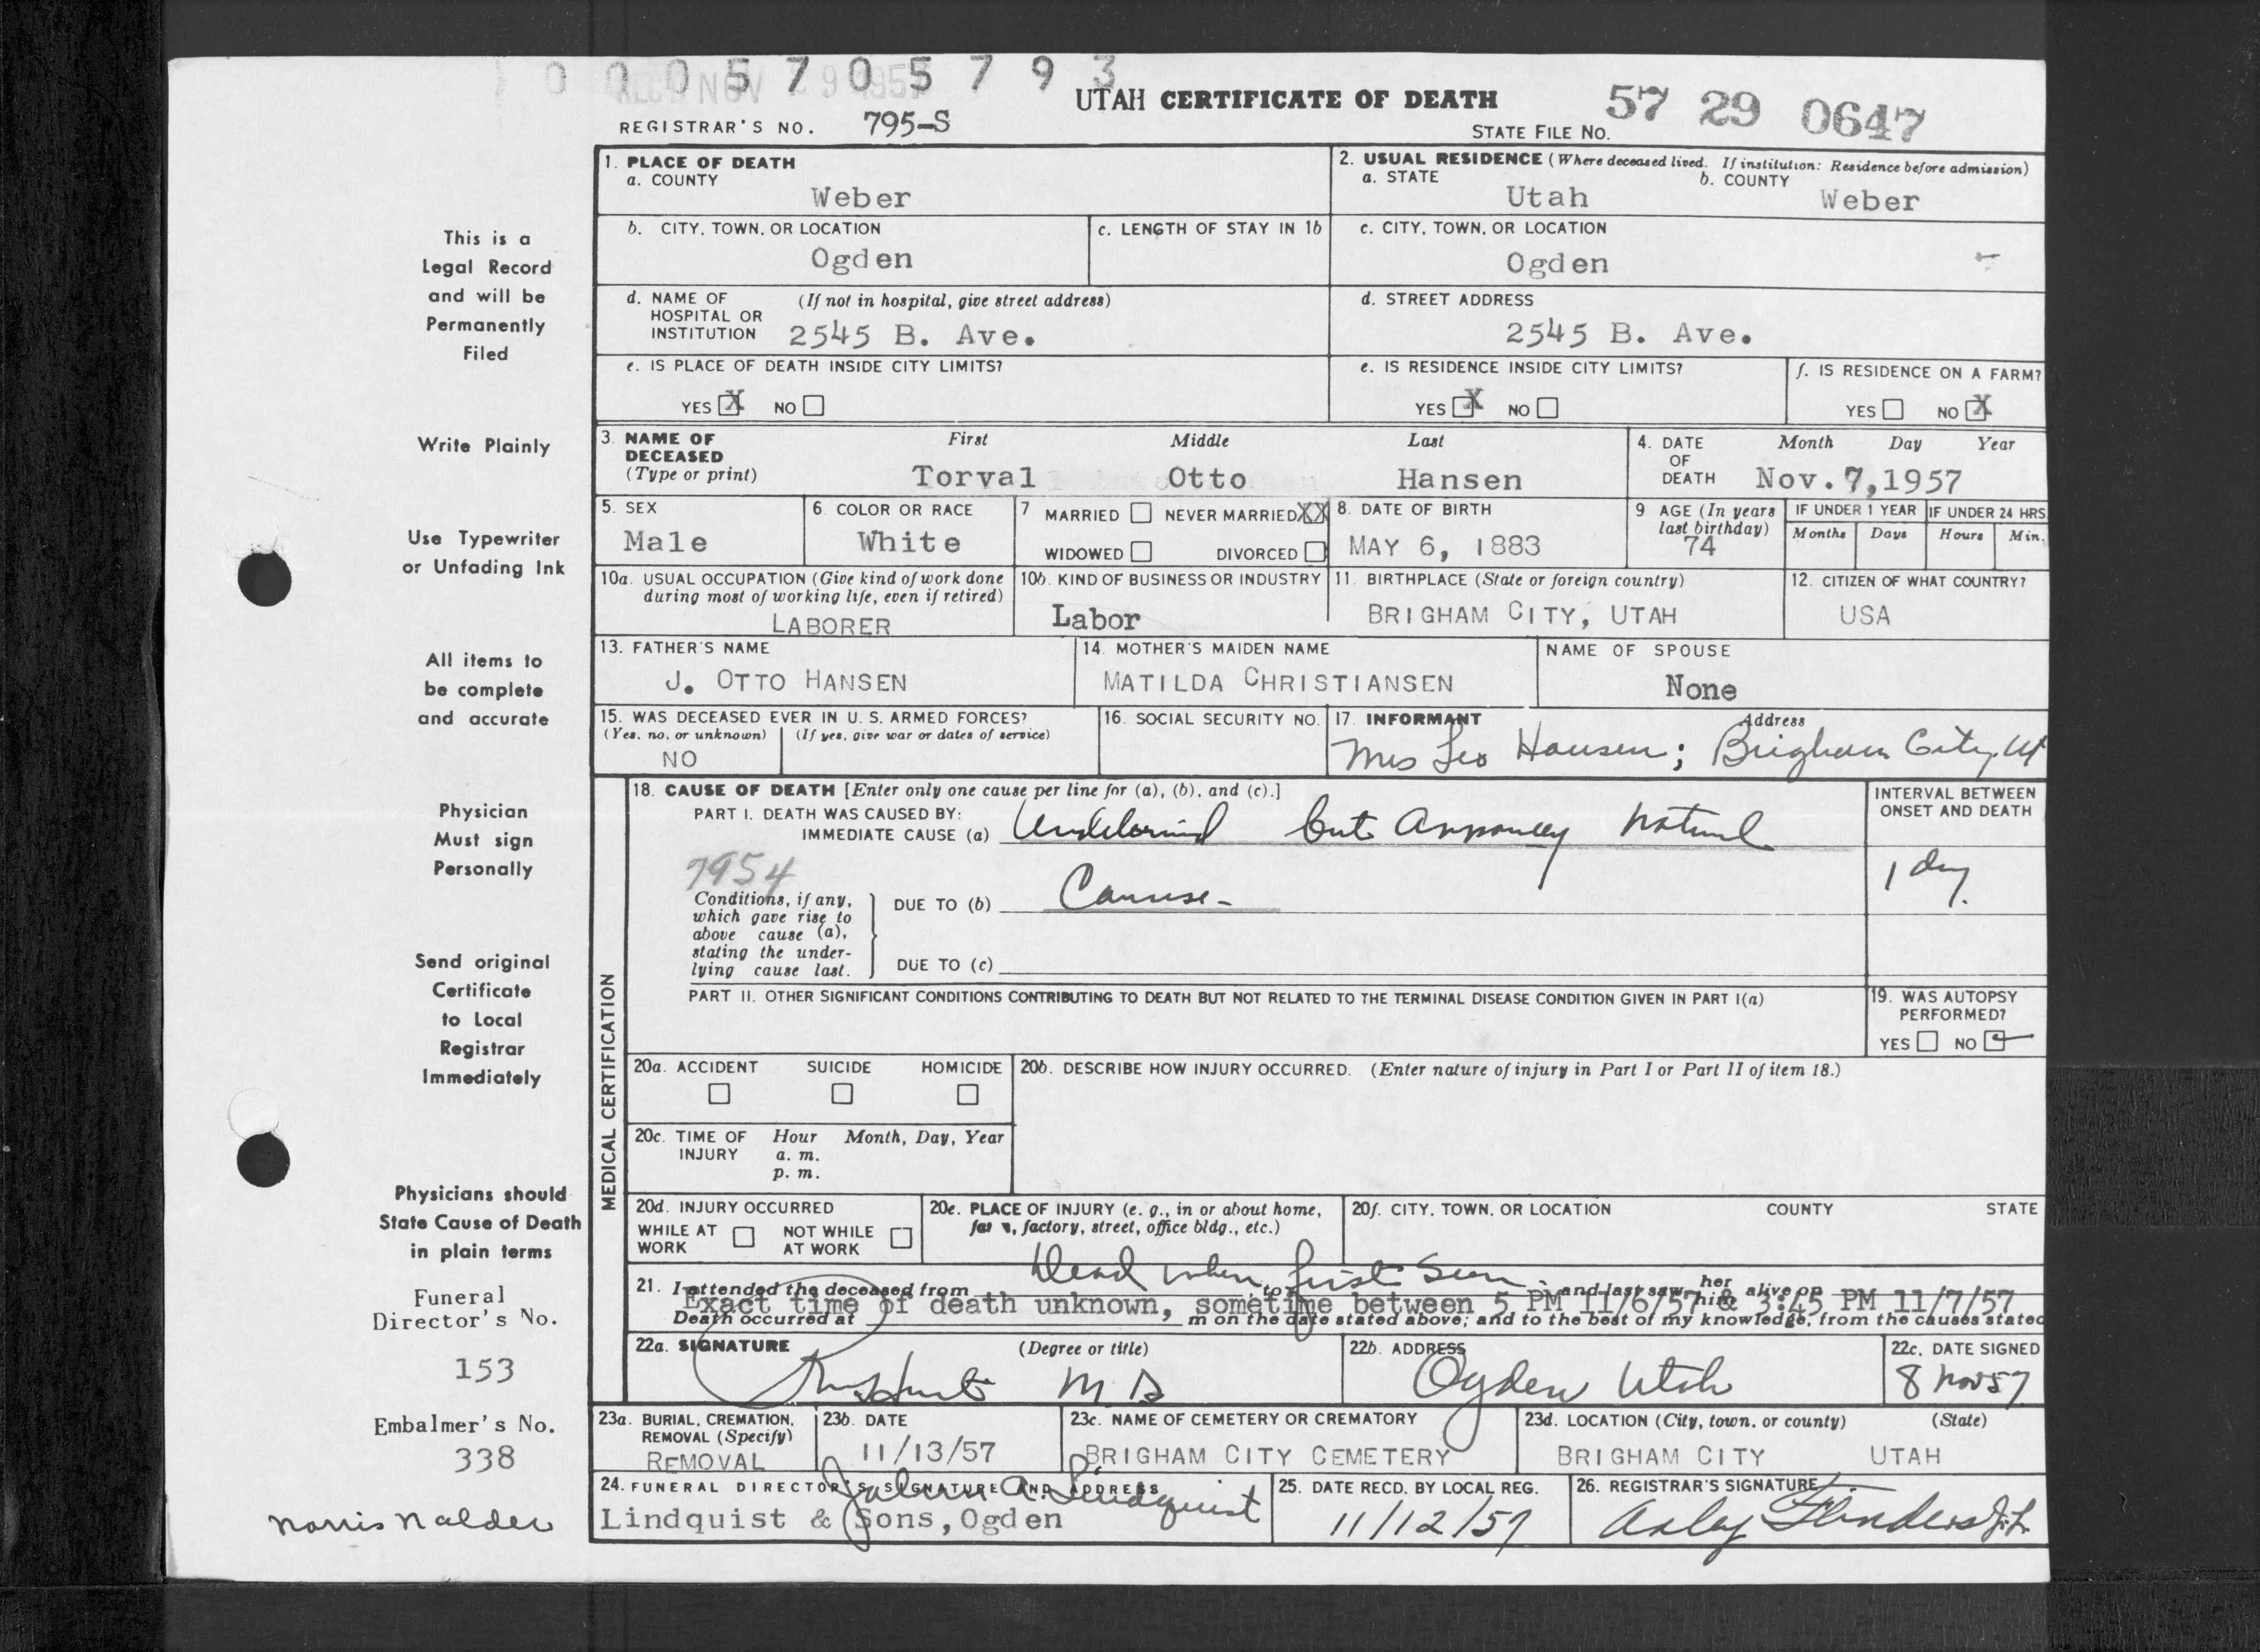 0 0 0 5 7 0 5 7 9 3
REC'D NOV 29 1957
UTAH CERTIFICATE OF DEATH
57 29 0647
REGISTRAR'S NO. 795-S
STATE FILE NO.
1. PLACE OF DEATH
a. COUNTY
Weber
2. USUAL RESIDENCE (Where deceased lived. If institution: Residence before admission)
a. STATE b. COUNTY
Utah Weber
b. CITY, TOWN, OR LOCATION
Ogden
c. LENGTH OF STAY IN 1b
c. CITY, TOWN, OR LOCATION
Ogden
d. NAME OF HOSPITAL OR INSTITUTION (If not in hospital, give street address)
2545 B. Ave.
d. STREET ADDRESS
2545 B. Ave.
e. IS PLACE OF DEATH INSIDE CITY LIMITS?
YES X NO
e. IS RESIDENCE INSIDE CITY LIMITS?
YES X NO
f. IS RESIDENCE ON A FARM?
YES NO X
3. NAME OF DECEASED (Type or print)
First Middle Last
Torval Otto Hansen
4. DATE OF DEATH Month Day Year
Nov. 7, 1957
5. SEX
Male
6. COLOR OR RACE
White
7 MARRIED NEVER MARRIED XX
WIDOWED DIVORCED
8. DATE OF BIRTH
MAY 6, 1883
9 AGE (In years last birthday)
74
IF UNDER 1 YEAR
Months Days
IF UNDER 24 HRS.
Hours Min.
10a. USUAL OCCUPATION (Give kind of work done during most of working life, even if retired)
LABORER
10b. KIND OF BUSINESS OR INDUSTRY
Labor
11. BIRTHPLACE (State or foreign country)
BRIGHAM CITY, UTAH
12. CITIZEN OF WHAT COUNTRY?
USA
13. FATHER'S NAME
J. OTTO HANSEN
14. MOTHER'S MAIDEN NAME
MATILDA CHRISTIANSEN
NAME OF SPOUSE
None
15. WAS DECEASED EVER IN U. S. ARMED FORCES?
(Yes, no, or unknown) (If yes, give war or dates of service)
NO
16. SOCIAL SECURITY NO.
17. INFORMANT Address
Mrs Leo Hansen; Brigham City, Ut
18. CAUSE OF DEATH [Enter only one cause per line for (a), (b), and (c).]
PART I. DEATH WAS CAUSED BY:
IMMEDIATE CAUSE (a) but natural
7954
Conditions, if any, which gave rise to above cause (a), stating the underlying cause last.
DUE TO (b) Causes-
DUE TO (c)
INTERVAL BETWEEN ONSET AND DEATH
1 day.
PART II. OTHER SIGNIFICANT CONDITIONS CONTRIBUTING TO DEATH BUT NOT RELATED TO THE TERMINAL DISEASE CONDITION GIVEN IN PART I(a)
19. WAS AUTOPSY PERFORMED?
YES NO
MEDICAL CERTIFICATION
20a. ACCIDENT SUICIDE HOMICIDE
20b. DESCRIBE HOW INJURY OCCURRED. (Enter nature of injury in Part I or Part II of item 18.)
20c. TIME OF INJURY Hour Month, Day, Year
a. m.
p. m.
20d. INJURY OCCURRED
WHILE AT WORK NOT WHILE AT WORK
20e. PLACE OF INJURY (e. g., in or about home, farm, factory, street, office bldg., etc.)
20f. CITY, TOWN, OR LOCATION COUNTY STATE
Dead when first seen
21. I attended the deceased from to and last saw her him alive on
Exact time of death unknown, sometime between 5 PM 11/6/57 & 3:45 PM 11/7/57
Death occurred at m on the date stated above; and to the best of my knowledge, from the causes stated
22a. SIGNATURE (Degree or title)
M D
22b. ADDRESS
Ogden Utah
22c. DATE SIGNED
8 Nov 57
23a. BURIAL, CREMATION, REMOVAL (Specify)
REMOVAL
23b. DATE
11/13/57
23c. NAME OF CEMETERY OR CREMATORY
BRIGHAM CITY CEMETERY
23d. LOCATION (City, town, or county) (State)
BRIGHAM CITY UTAH
24. FUNERAL DIRECTOR'S SIGNATURE AND ADDRESS
John A. Lindquist
Lindquist & Sons, Ogden
25. DATE RECD. BY LOCAL REG.
11/12/57
26. REGISTRAR'S SIGNATURE
Flinders
This is a
Legal Record
and will be
Permanently
Filed
Write Plainly
Use Typewriter
or Unfading Ink
All items to
be complete
and accurate
Physician
Must sign
Personally
Send original
Certificate
to Local
Registrar
Immediately
Physicians should
State Cause of Death
in plain terms
Funeral
Director's No.
153
Embalmer's No.
338
Norris Nalder